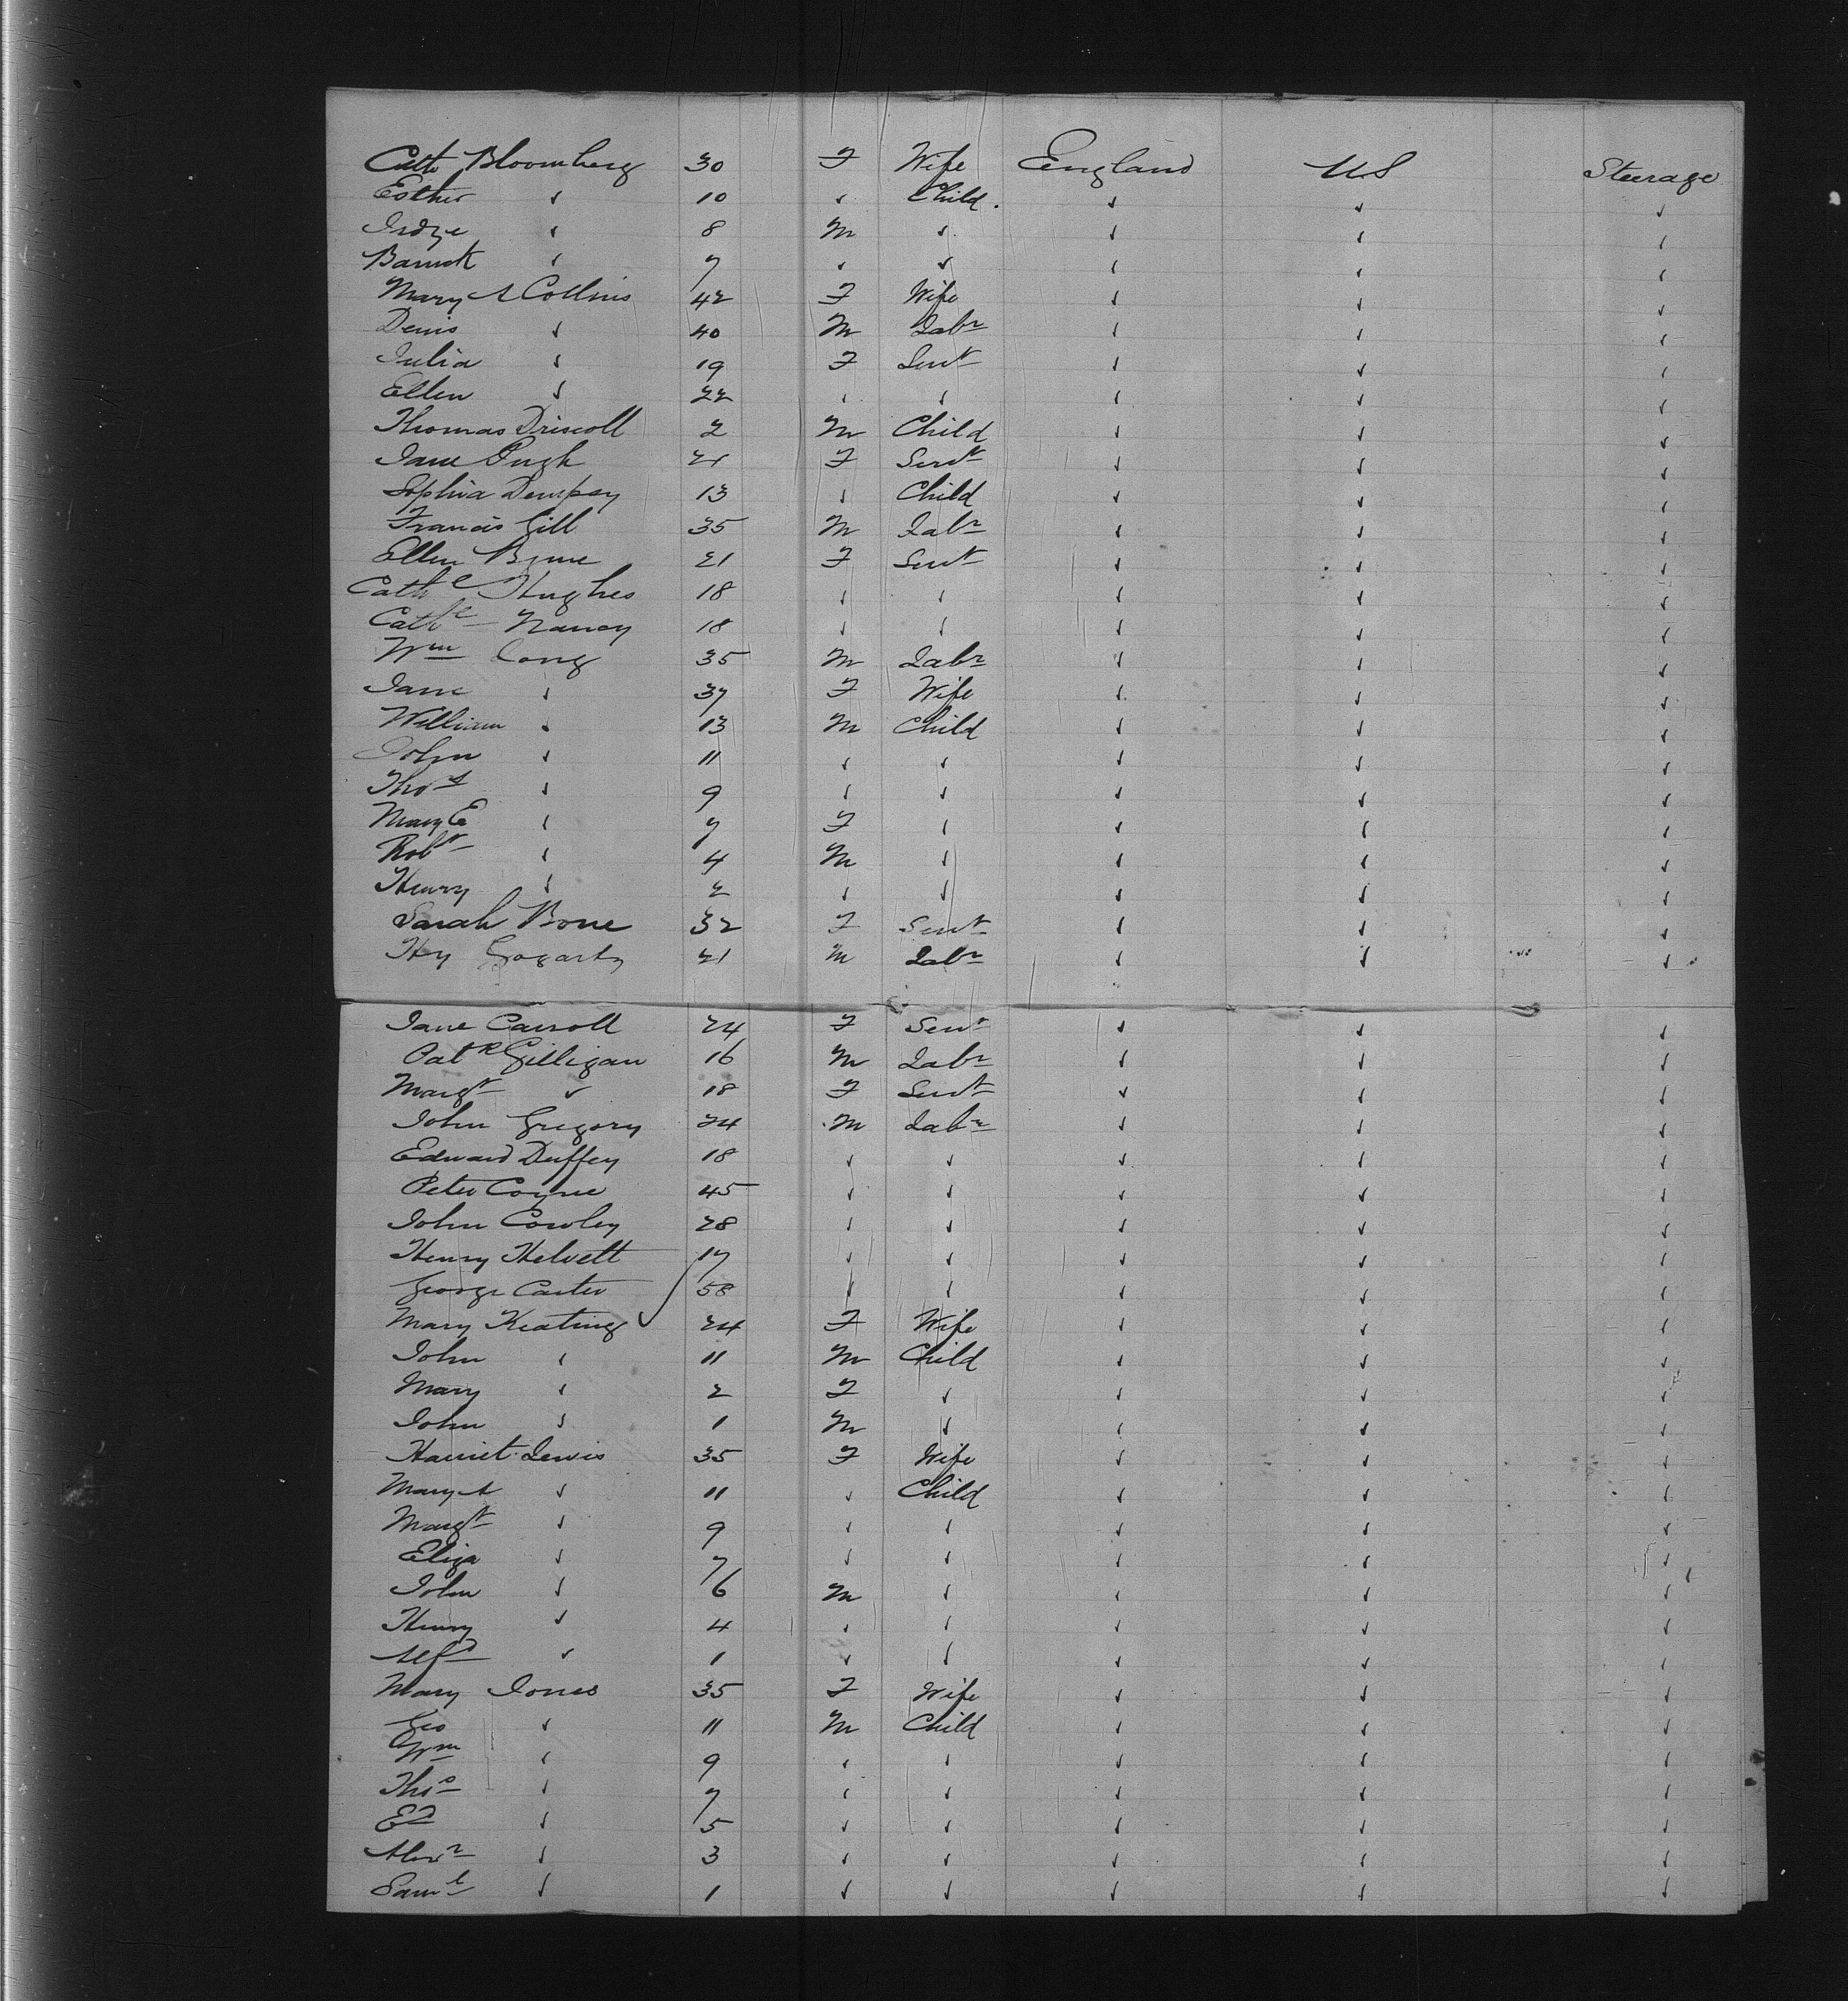 Cath Bloomberg 30 F Wife England US Steerage
Esther ✓ 10 ✓ Child. ✓ ✓ ✓
✓ 8 M ✓ ✓ ✓ ✓
Baruck ✓ 7 ✓ ✓ ✓ ✓ ✓
Mary A Collins 42 F Wife ✓ ✓ ✓
Denis ✓ 40 M Labr ✓ ✓ ✓
Julia ✓ 19 F Servt ✓ ✓ ✓
Ellen ✓ 22 ✓ ✓ ✓ ✓ ✓
Thomas Driscoll 2 M Child ✓ ✓ ✓
Jane Pugh 21 F Servt ✓ ✓ ✓
Sophia Dempsey 13 ✓ Child ✓ ✓ ✓
Francis Gill 35 M Labr ✓ ✓ ✓
Ellen Byrne 21 F Servt ✓ ✓ ✓
Cathe Hughes 18 ✓ ✓ ✓ ✓ ✓
Cathe Nancy 18 ✓ ✓ ✓ ✓ ✓
Wm Long 35 M Labr ✓ ✓ ✓
Jane ✓ 37 F Wife ✓ ✓ ✓
William ✓ 13 M Child ✓ ✓ ✓
John ✓ 11 ✓ ✓ ✓ ✓ ✓
Thos ✓ 9 ✓ ✓ ✓ ✓ ✓
Mary E ✓ 7 F ✓ ✓ ✓ ✓
Robt ✓ 4 M ✓ ✓ ✓ ✓
Henry ✓ 2 ✓ ✓ ✓ ✓ ✓
Sarah Bone 32 F Servt ✓ ✓ ✓
Hy Gogarty 21 M Labr ✓ ✓ ✓
Jane Carroll 24 F Servt ✓ ✓ ✓
Patk Gilligan 16 M Labr ✓ ✓ ✓
Margt ✓ 18 F Servt ✓ ✓ ✓
John Gregory 24 M Labr ✓ ✓ ✓
Edward Duffey 18 ✓ ✓ ✓ ✓ ✓
Peter Coyne 45 ✓ ✓ ✓ ✓ ✓
John Cowley 28 ✓ ✓ ✓ ✓ ✓
Henry Helvett 17 ✓ ✓ ✓ ✓ ✓
George Carter 58 ✓ ✓ ✓ ✓ ✓
Mary Keating ✓ 24 F Wife ✓ ✓ ✓
John ✓ 11 M Child ✓ ✓ ✓
Mary ✓ 2 F ✓ ✓ ✓ ✓
John ✓ 1 M ✓ ✓ ✓ ✓
Harriet Lewis 35 F Wife ✓ ✓ ✓
Mary A ✓ 11 ✓ Child ✓ ✓ ✓
Margt ✓ 9 ✓ ✓ ✓ ✓ ✓
Eliza ✓ 7 ✓ ✓ ✓ ✓ ✓
John ✓ 6 M ✓ ✓ ✓ ✓
Henry ✓ 4 ✓ ✓ ✓ ✓ ✓
Alfd ✓ 1 ✓ ✓ ✓ ✓ ✓
Mary Jones 35 F Wife ✓ ✓ ✓
Geo ✓ 11 M Child ✓ ✓ ✓
Wm ✓ 9 ✓ ✓ ✓ ✓ ✓
Thos ✓ 7 ✓ ✓ ✓ ✓ ✓
Ed ✓ 5 ✓ ✓ ✓ ✓ ✓
Alexr ✓ 3 ✓ ✓ ✓ ✓ ✓
Saml ✓ 1 ✓ ✓ ✓ ✓ ✓